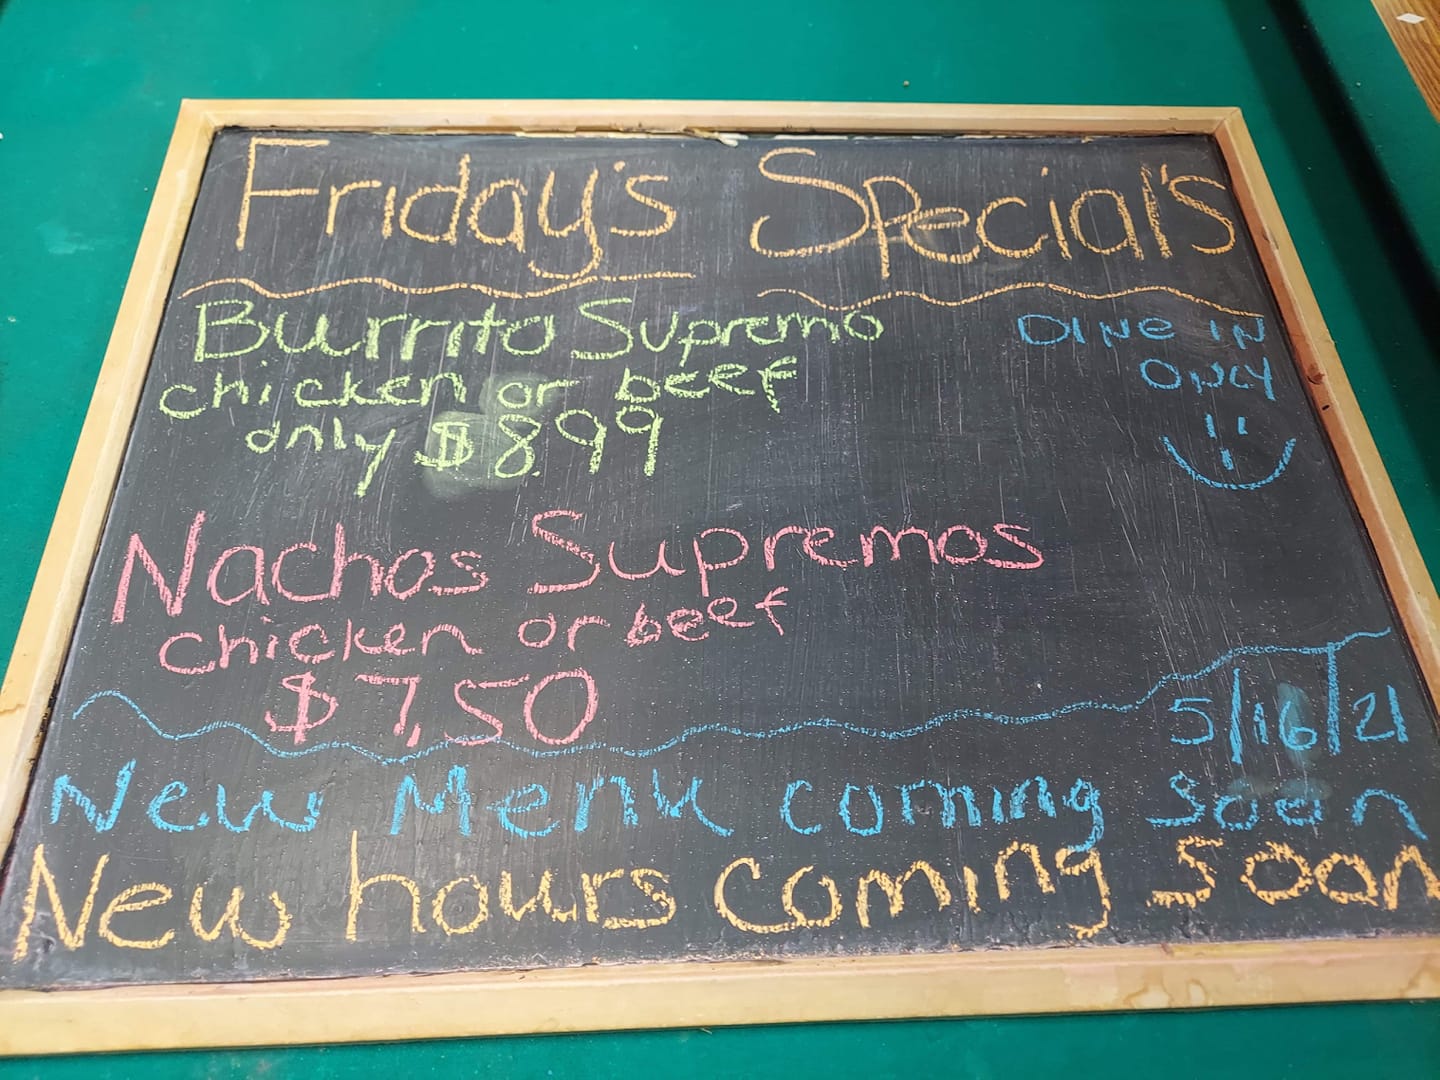 Friday's Special's
Burrito Supremo
chicken or beef
only $8.99
DINE IN
ONLY
Nachos Supremos
chicken or beef
$7.50
5/16/21
New Menu coming soon
New hours coming soon